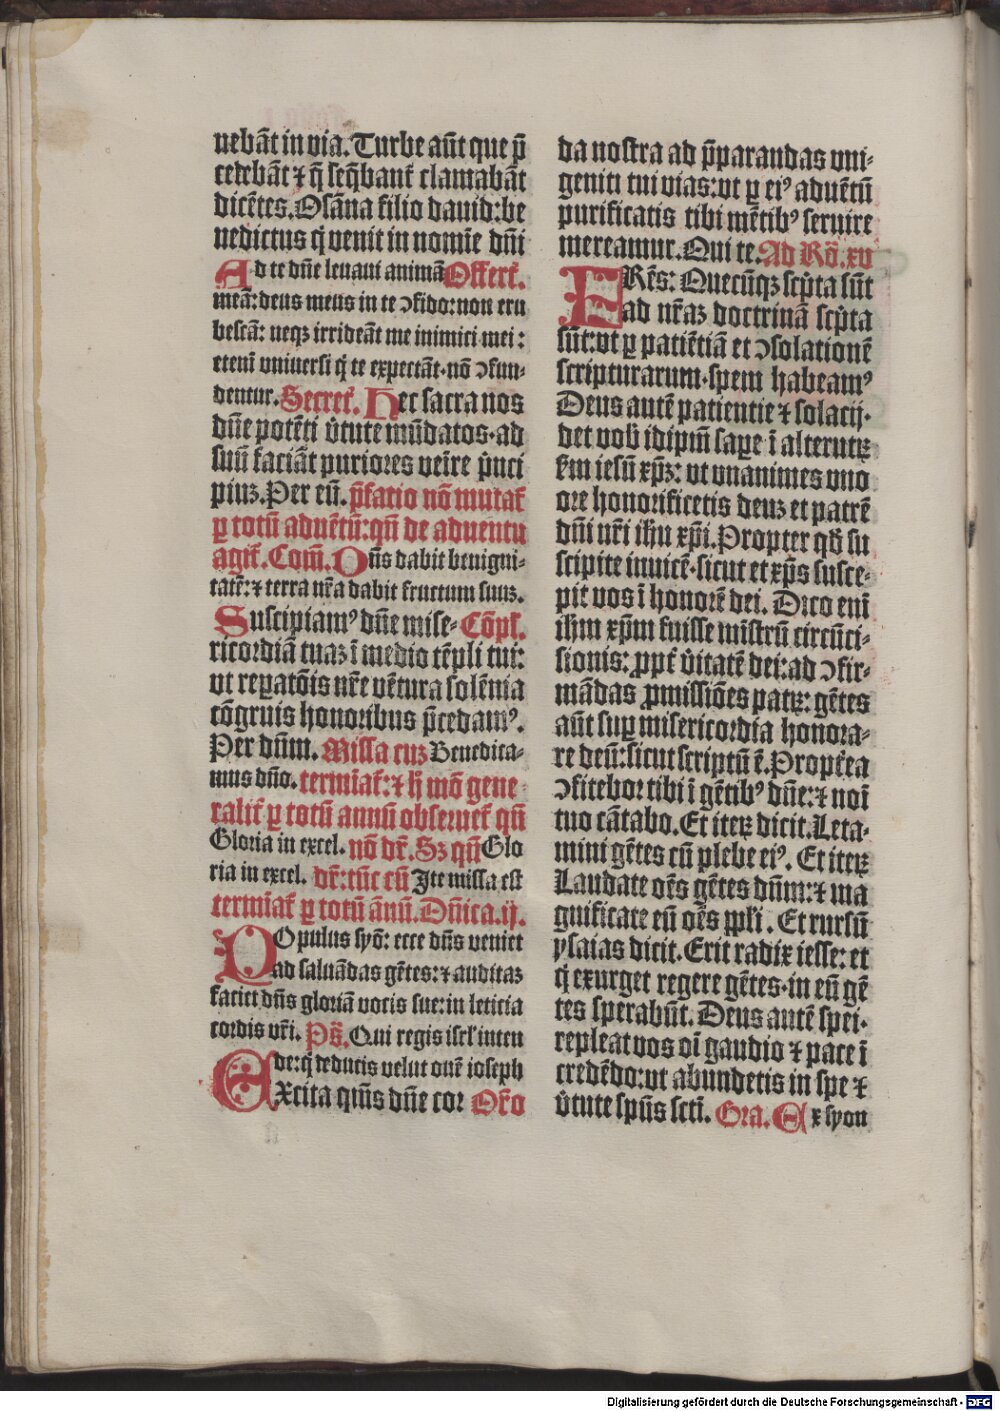 nebāt in via. Turbe aūt que p̄
cedebāt ⁊ q̄ seq̄bant᷑ clamabāt
dicētes. Osāna filio david: be
nedictus q̇ venit in nomīe dn̄i
Ad te dn̄e levavi animā Offert᷑.
meā: deus meus in te ↄfido: non eru
bescā: neqȝ irrideāt me inimici mei:
etenī universi q̇ te expectāt· nō ↄfun-
dentur. Secret᷑. Hec sacra nos
dn̄e potēti v̇tute mūdatos· ad
suū faciāt puriores veīre pṅci
piuȝ. Per eū. p̄fatio nō mutat᷑
ꝑ totū advētū: qn̄ de adventu
agit᷑. Com̄. Dn̄s dabit benigni-
tatē: ⁊ terra nr̄a dabit fructum suuȝ.
Suscipiamꝰ dn̄e mise- Cōpl᷑.
ricordiā tuaȝ ī medio tēpli tui:
vt reꝑatōis nr̄e vētura solēnia
cōgruis honoribus p̄cedamꝰ.
Per dn̄m. Missa cuȝ Benedica-
mus dn̄o. termīat᷑: ⁊ h̄ mō gene
ralit᷑ ꝑ totū annū observet᷑ qn̄
Gloria in excel. nō dr̄. Sȝ qn̄ Glo
ria in excel. dr̄: tūc cū Ite missa est
termīat᷑ ꝑ totū ānū. Dn̄ica. ij.
POpulus syō: ecce dn̄s veniet
ad salvādas gētes: ⁊ auditaȝ
faciet dn̄s gloriā vocis sue: in leticia
cordis vr̄i. Ps̄. Qui regis isrl᷑ inten
de: q̇ deducis velut ovē ioseph
EXcita qs̄ums dn̄e cor Or̄o
da nostra ad p̄parandas vni-
geniti tui vias: vt ꝑ eiꝰ advētū
purificatis tibi mētibꝰ servire
mereamur. Qui te. Ad Rō. xv
FRēs: Quecūqȝ scṗta sūt
ad nr̄aȝ doctrinā scṗta
sūt: vt ꝑ patiētiā et ↄsolationē
scripturarum· spem habeamꝰ
Deus autē patientie ⁊ solacij·
det vob̄ idipm̄ saꝑe ī alterutꝝ
s̄m iesū xp̄ȝ: vt vnanimes vno
ore honorificetis deuȝ et patrē
dn̄i nr̄i ihū xp̄i. Propter qd̄ su
scipite invicē· sicut et xp̄s susce-
pit vos ī honorē dei. Dico enī
ihm̄ xp̄m fuisse mīstrū circūci-
sionis: ꝓpt᷑ v̇itatē dei: ad ↄfir-
mādas ꝓmissiōes patꝝ: gētes
aūt suꝑ misericordia honora-
re deū: sicut scriptū ē. Propt᷑ea
ↄfitebor tibi ī gētibꝰ dn̄e: ⁊ noī
tuo cātabo. Et iteꝝ dicit. Leta-
mini gētes cū plebe eiꝰ. Et iteꝝ
Laudate oēs gētes dn̄m: ⁊ ma
gnificate eū oēs pp̄l̄i. Et rursū
ysaias dicit. Erit radix iesse: et
q̇ exurget regere gētes· in eū gē
tes sperabūt. Deus autē spei·
repleat vos oī gaudio ⁊ pace ī
credēdo: vt abundetis in spe ⁊
v̇tute spūs scti̇. Gra. Ex syon
Digitalisierung gefördert durch die Deutsche Forschungsgemeinschaft - DFG